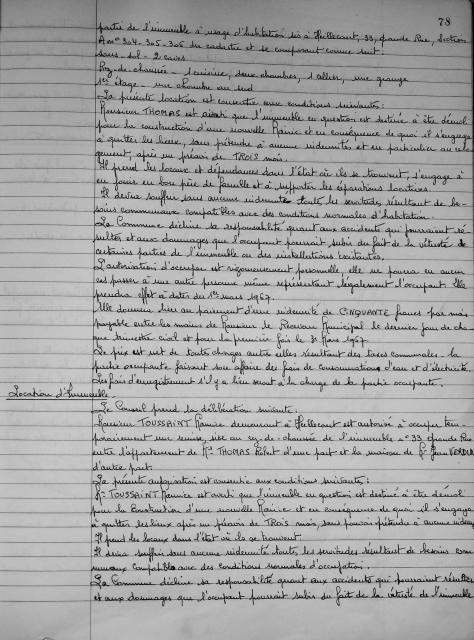 78
partie de l'immeuble à usage d'habitation sis à Heillecourt, 33, Grande Rue, Section
A nos 304-305-306 du cadastre et se composant comme suit:
sous-sol - 2 caves
Rez-de-chaussée - 1 cuisine, deux chambres, 1 allier, une grange
1er étage - une chambre au sud
La présente location est consentie aux conditions suivantes:
Monsieur THOMAS est averti que l'immeuble en question est destiné à être démoli
pour la construction d'une nouvelle Mairie et en conséquence de quoi il s'engage
à quitter les lieux, sans prétendre à aucune indemnités et en particulier au relo-
gement, après un préavis de TROIS mois.
Il prend les locaux et dépendances dans l'état où ils se trouvent, s'engage à
en jouir en bon père de famille et à supporter les réparations locatives.
Il devra souffrir sans aucune indemnités toute les servitudes résultant de be-
soins communaux compatibles avec des conditions normales d'habitation.
La Commune décline sa responsabilité quant aux accidents qui pourraient ré-
sulter et aux dommages que l'occupant pourrait subir du fait de la vétusté de
certaines parties de l'immeuble ou des installations existantes.
L'autorisation d'occuper est rigoureusement personnelle, elle ne pourra en aucun
cas passer à une autre personne même représentant légalement l'occupant. Elle
prendra effet à dater du 1er mars 1967.
Elle donnera lieu au paiement d'une indemnité de CINQUANTE francs par mois
payable entre les mains de Monsieur le Receveur Municipal le dernier jour de cha-
que trimestre civil et pour la première fois le 31 Mars 1967.
Le prix est net de toutes charges autres celles résultant des taxes communales - la
partie occupante faisant son affaire des frais de consommations d'eau et d'électricité.
Les frais d'enregistrement s'il y a lieu sont à la charge de la partie occupante.
Location d'Immeuble
Le Conseil prend la délibération suivante:
Monsieur TOUSSAINT Maurice demeurant à Heillecourt est autorisé à occuper tem-
porairement une remise, sise au rez-de-chaussée de l'immeuble n° 33 Grande Rue
entre l'appartement de Mr THOMAS Robert d'une part et la maison de Mr Jean
d'autre part.
La présente autorisation est consentie aux conditions suivantes:
Mr TOUSSAINT Maurice est averti que l'immeuble en question est destiné à être démoli
pour la construction d'une nouvelle Mairie et en conséquence de quoi il s'engage
à quitter les lieux après un préavis de TROIS mois, sans pouvoir prétendre à aucune
Il prend les locaux dans l'état où ils se trouvent
Il devra souffrir sans aucune indemnité toute les servitudes résultant de besoins com-
munaux compatibles avec des conditions normales d'occupation.
La Commune décline sa responsabilité quant aux accidents qui pourraient résulter
et aux dommages que l'occupant pourrait subir du fait de la vétusté de l'immeuble